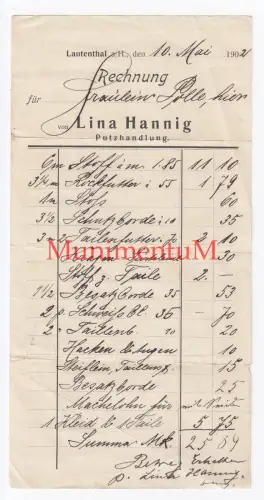 Lautenthal a/H., den 10. Mai 1902
Rechnung
für Fräulein Pölle, hier
von Lina Hannig
Putzhandlung.
6 m Stoff i. m. 1.85 11 10
3 1/4 m Rockfutter : 55 1 79
1 m Stoß 60
3 1/2 Schutzborde : 10 35
3 Tailenfutter 70 2 10
30
Stoff z. Taile 2. –
1 1/2 Besatzborde 35 53
2 p Schweißbl. 36 – 70
2 Taillenb 10 20
Hacken & Augen 10
15
Besatzborde 25
MunimentuM
Machelohn für
1 Kleid & 1 Taile 5 75
Summa Mk. 25 69
Erhalten
p. Lina Hannig